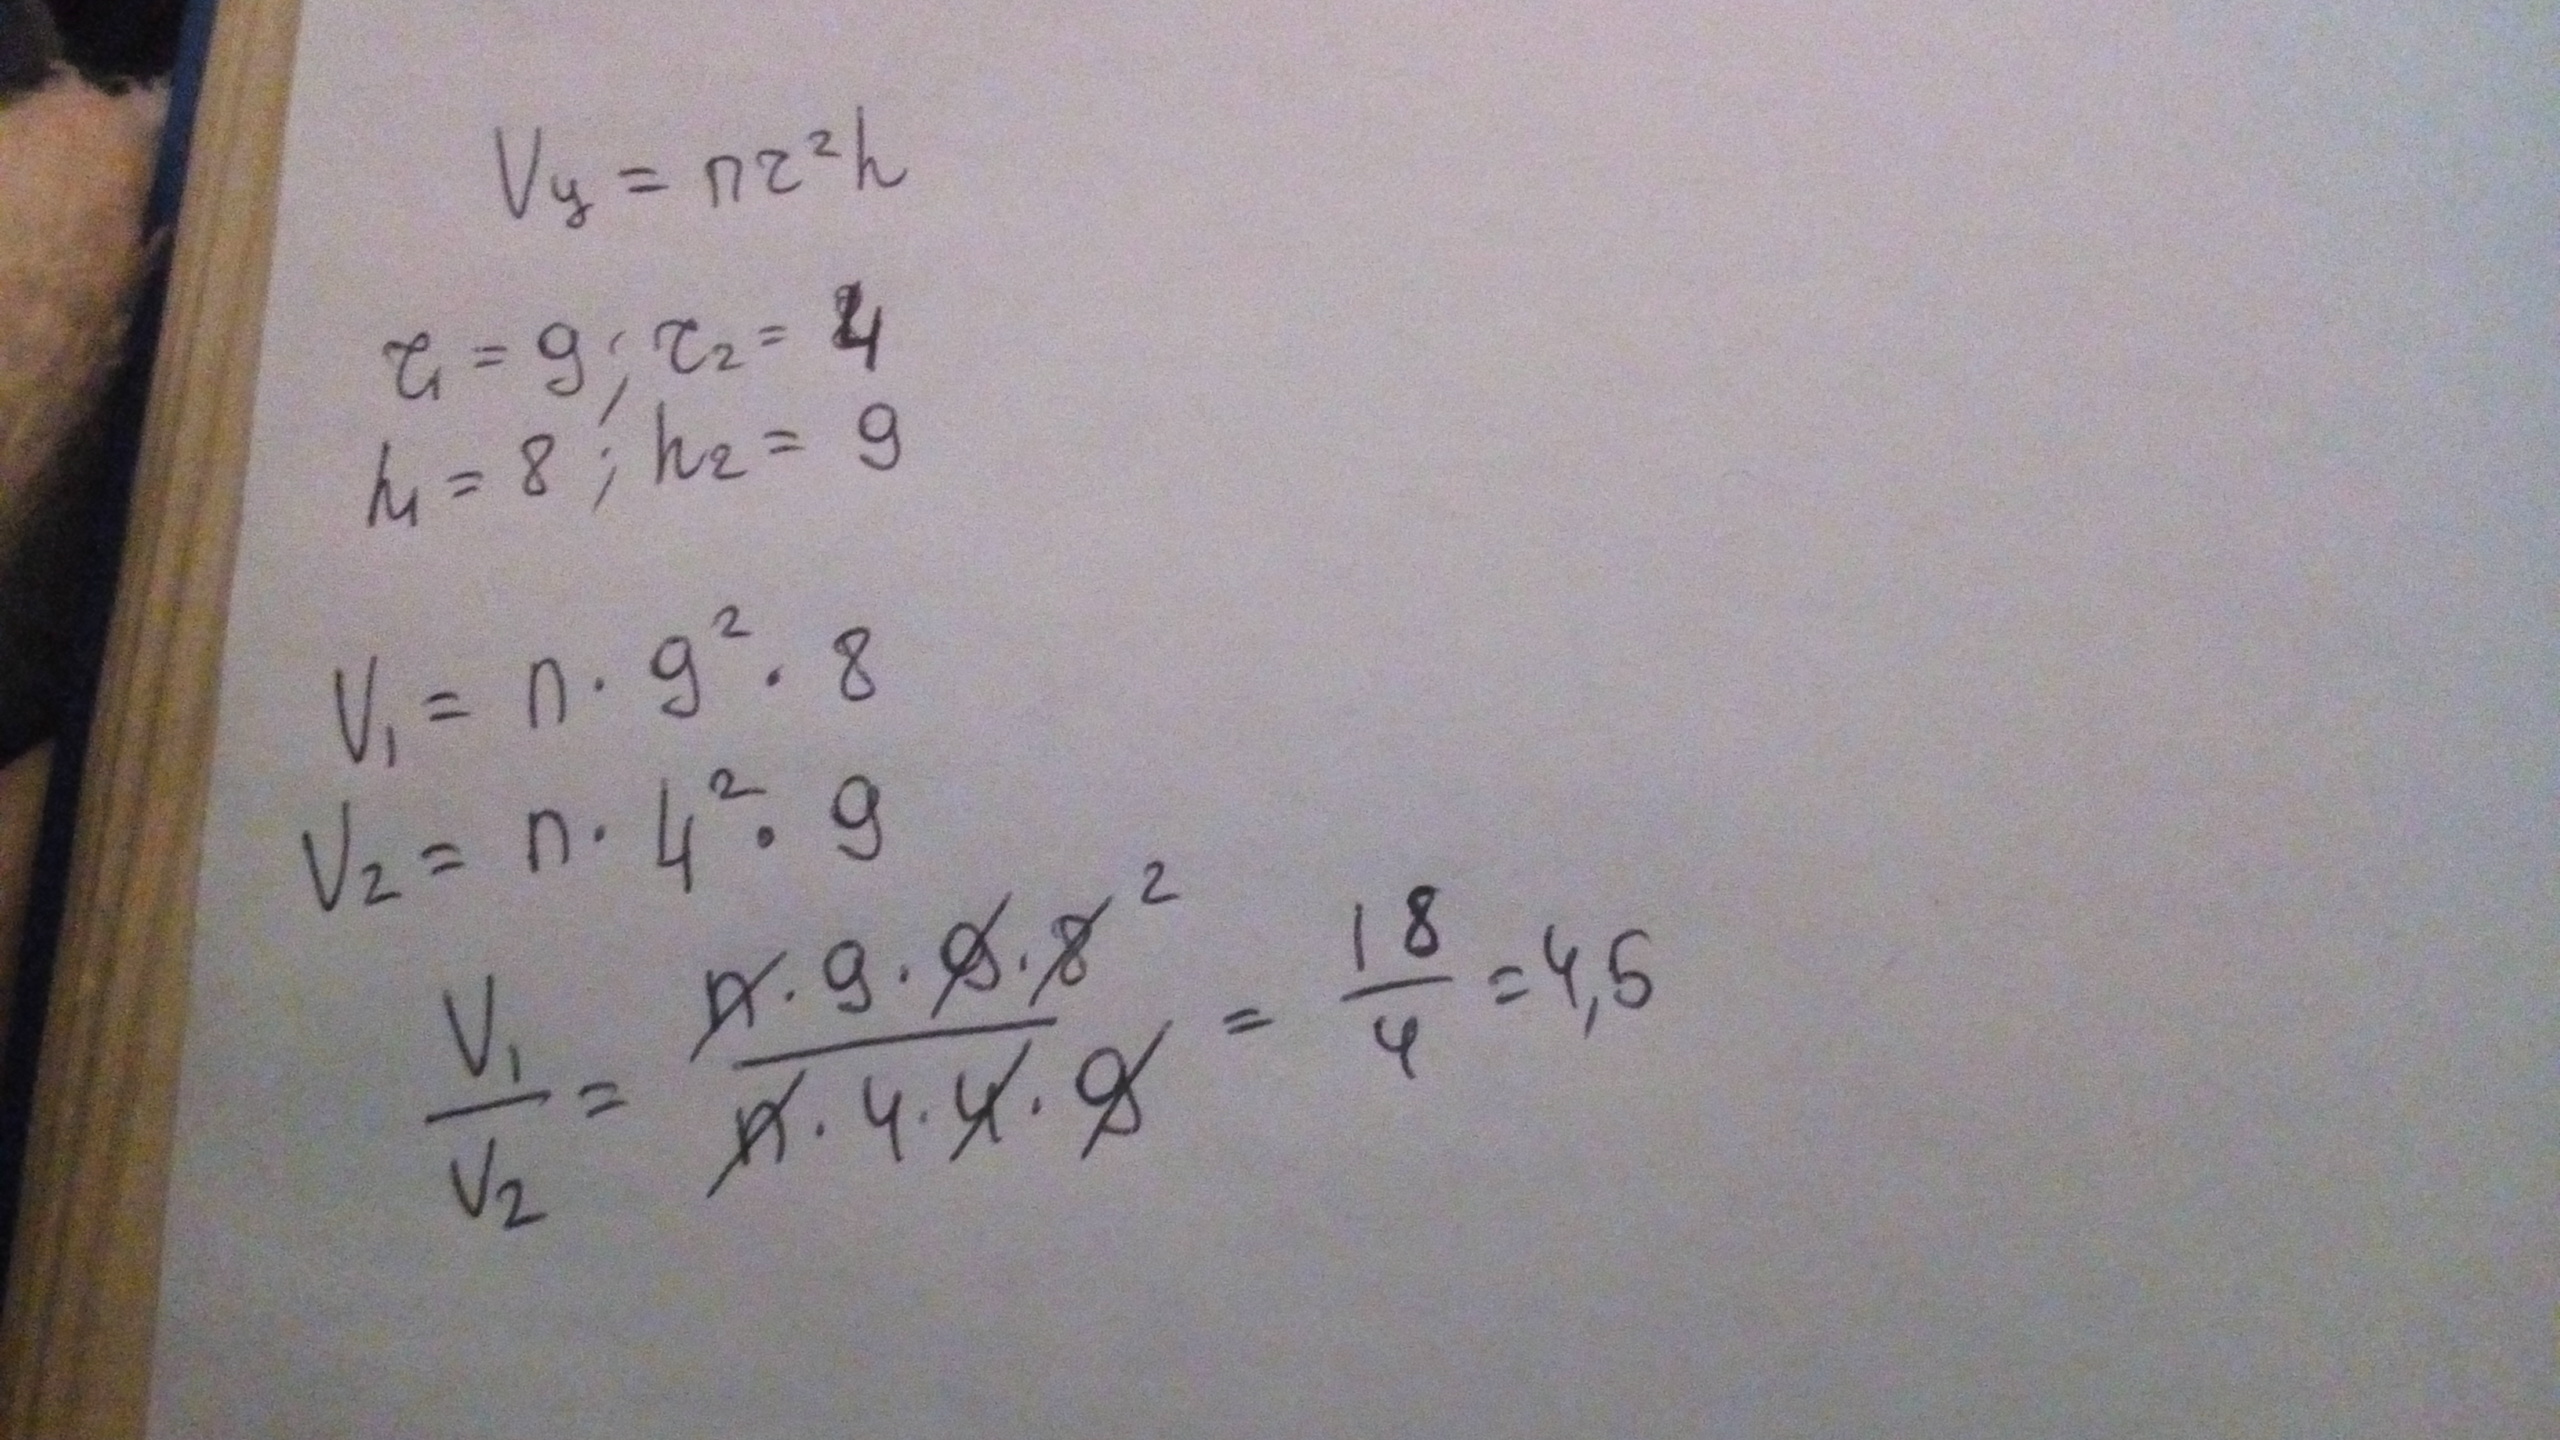 Vy = πr²h
r₁ = 9; r₂ = 4
h₁ = 8; h₂ = 9
V₁ = π · 9² · 8
V₂ = π · 4² · 9
V₁/V₂ = (π · 9 · 9 · 8 ²)/(π · 4 · 4 · 9) = 18/4 = 4,5